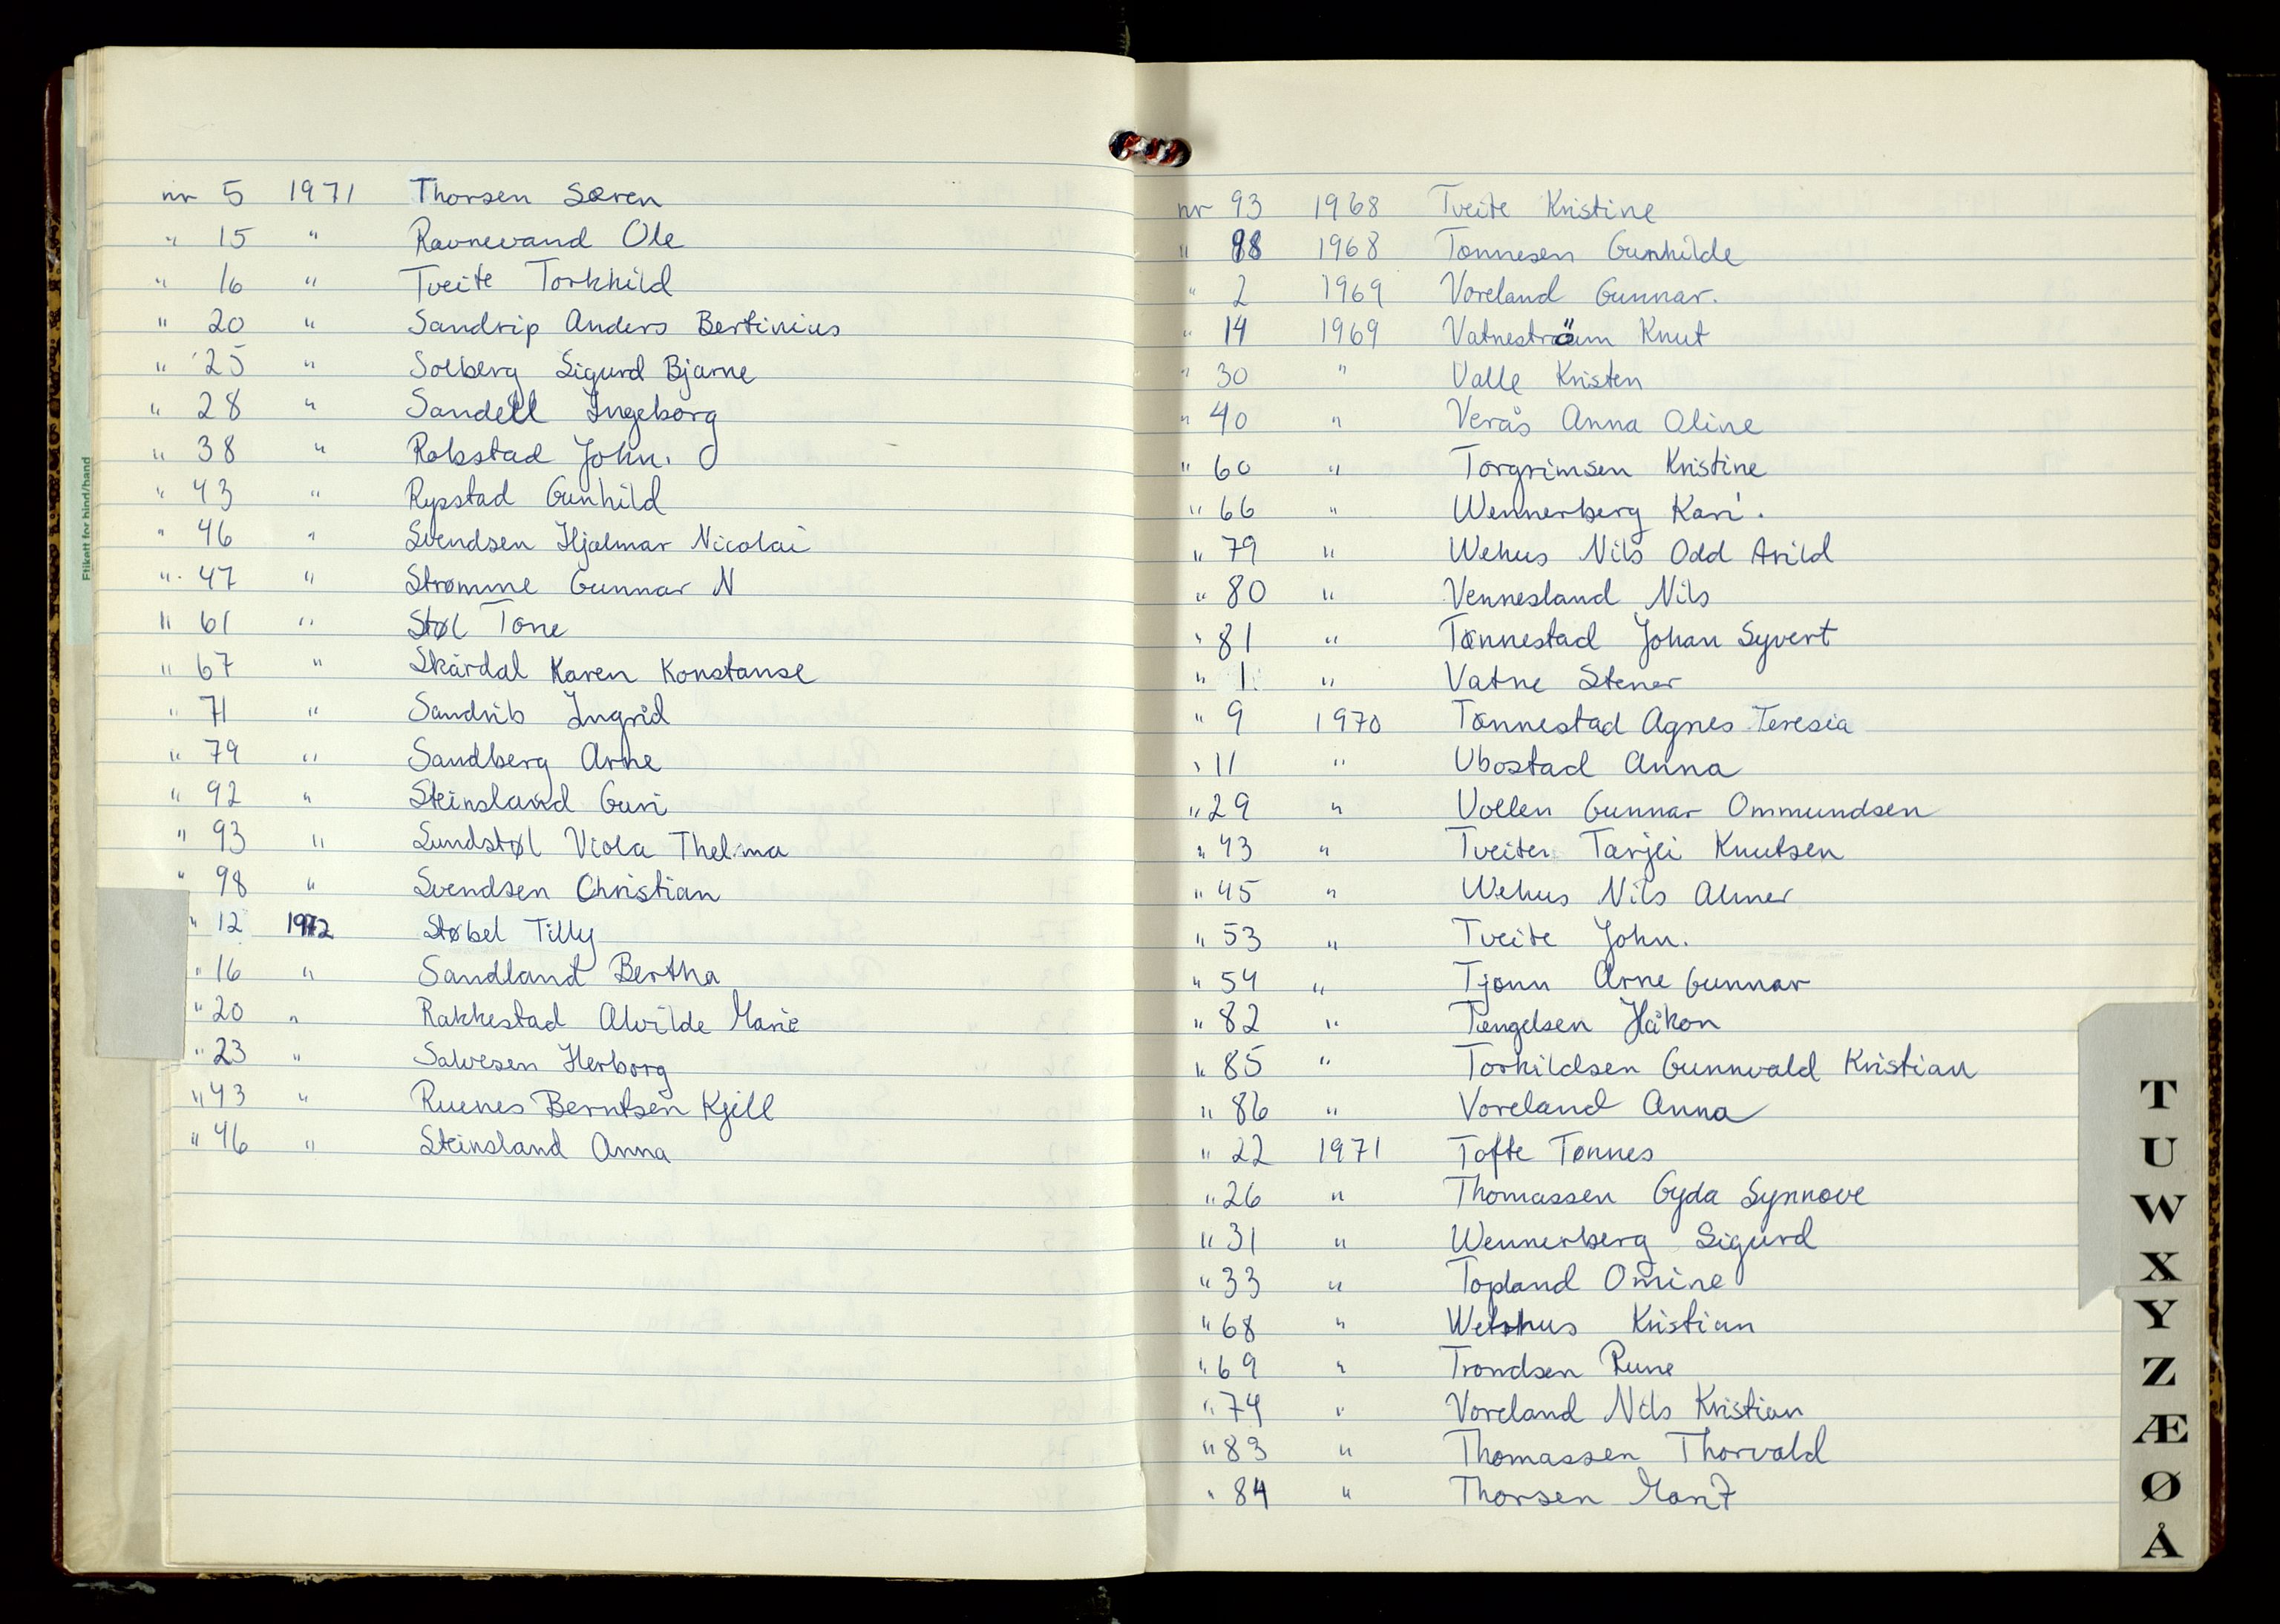 nr 5 1971 Thorsen Søren
" 15 " Ravnevand Ole
" 16 " Tveite Torkhild
" 20 " Sandrip Anders Bertinius
" 25 " Solberg Sigurd Bjarne
" 28 " Sandell Ingeborg
" 38 " Robstad John.
" 43 " Rypstad Gunhild
" 46 " Svendsen Hjalmar Nicolai
" 47 " Strømme Gunnar N
" 61 " Støl Tone
" 67 " Skårdal Karen Konstanse
" 71 " Sandrib Ingrid
" 79 " Sandberg Arne
" 92 " Steinsland Guri
" 93 " Sundstøl Viola Thelma
" 98 " Svendsen Christian
" 12 1972 Støbel Tilly
" 16 " Sandland Bertha
" 20 " Rakkestad Alvilde Marie
" 23 " Salvesen Herborg
" 43 " Ruenes Berntsen Kjell
" 46 " Steinsland Anna
Etikett for bind/band
nr 93 1968 Tveite Kristine
" 98 1968 Tønnesen Gunhilde
" 2 1969 Voreland Gunnar.
" 14 1969 Vatneström Knut
" 30 " Valle Kristen
" 40 " Verås Anna Oline
" 60 " Torgrimsen Kristine
" 66 " Wennerberg Kari.
" 79 " Wehus Nils Odd Arild
" 80 " Vennesland Nils
" 81 " Tønnestad Johan Syvert
" 1 " Vatne Stener
" 9 1970 Tønnestad Agnes Teresia
" 11 " Ubostad Anna
" 29 " Vollen Gunnar Ommundsen
" 43 " Tveiten Tarjei Knutsen
" 45 " Wehus Nils Almer
" 53 " Tveite John.
" 54 " Tjønn Arne Gunnar
" 82 " Tengelsen Håkon
" 85 " Torkildsen Gunnvald Kristian
" 86 " Voreland Anna
" 22 1971 Tofte Tønnes
" 26 " Thomassen Gyda Synnøve
" 31 " Wennerberg Sigurd
" 33 " Topland Omine
" 68 " Kristian
" 69 " Trondsen Rune
" 74 " Voreland Nils Kristian
" 83 " Thomassen Thorvald
" 84 " Thorsen
T
U
W
X
Y
Z
Æ
Ø
Å